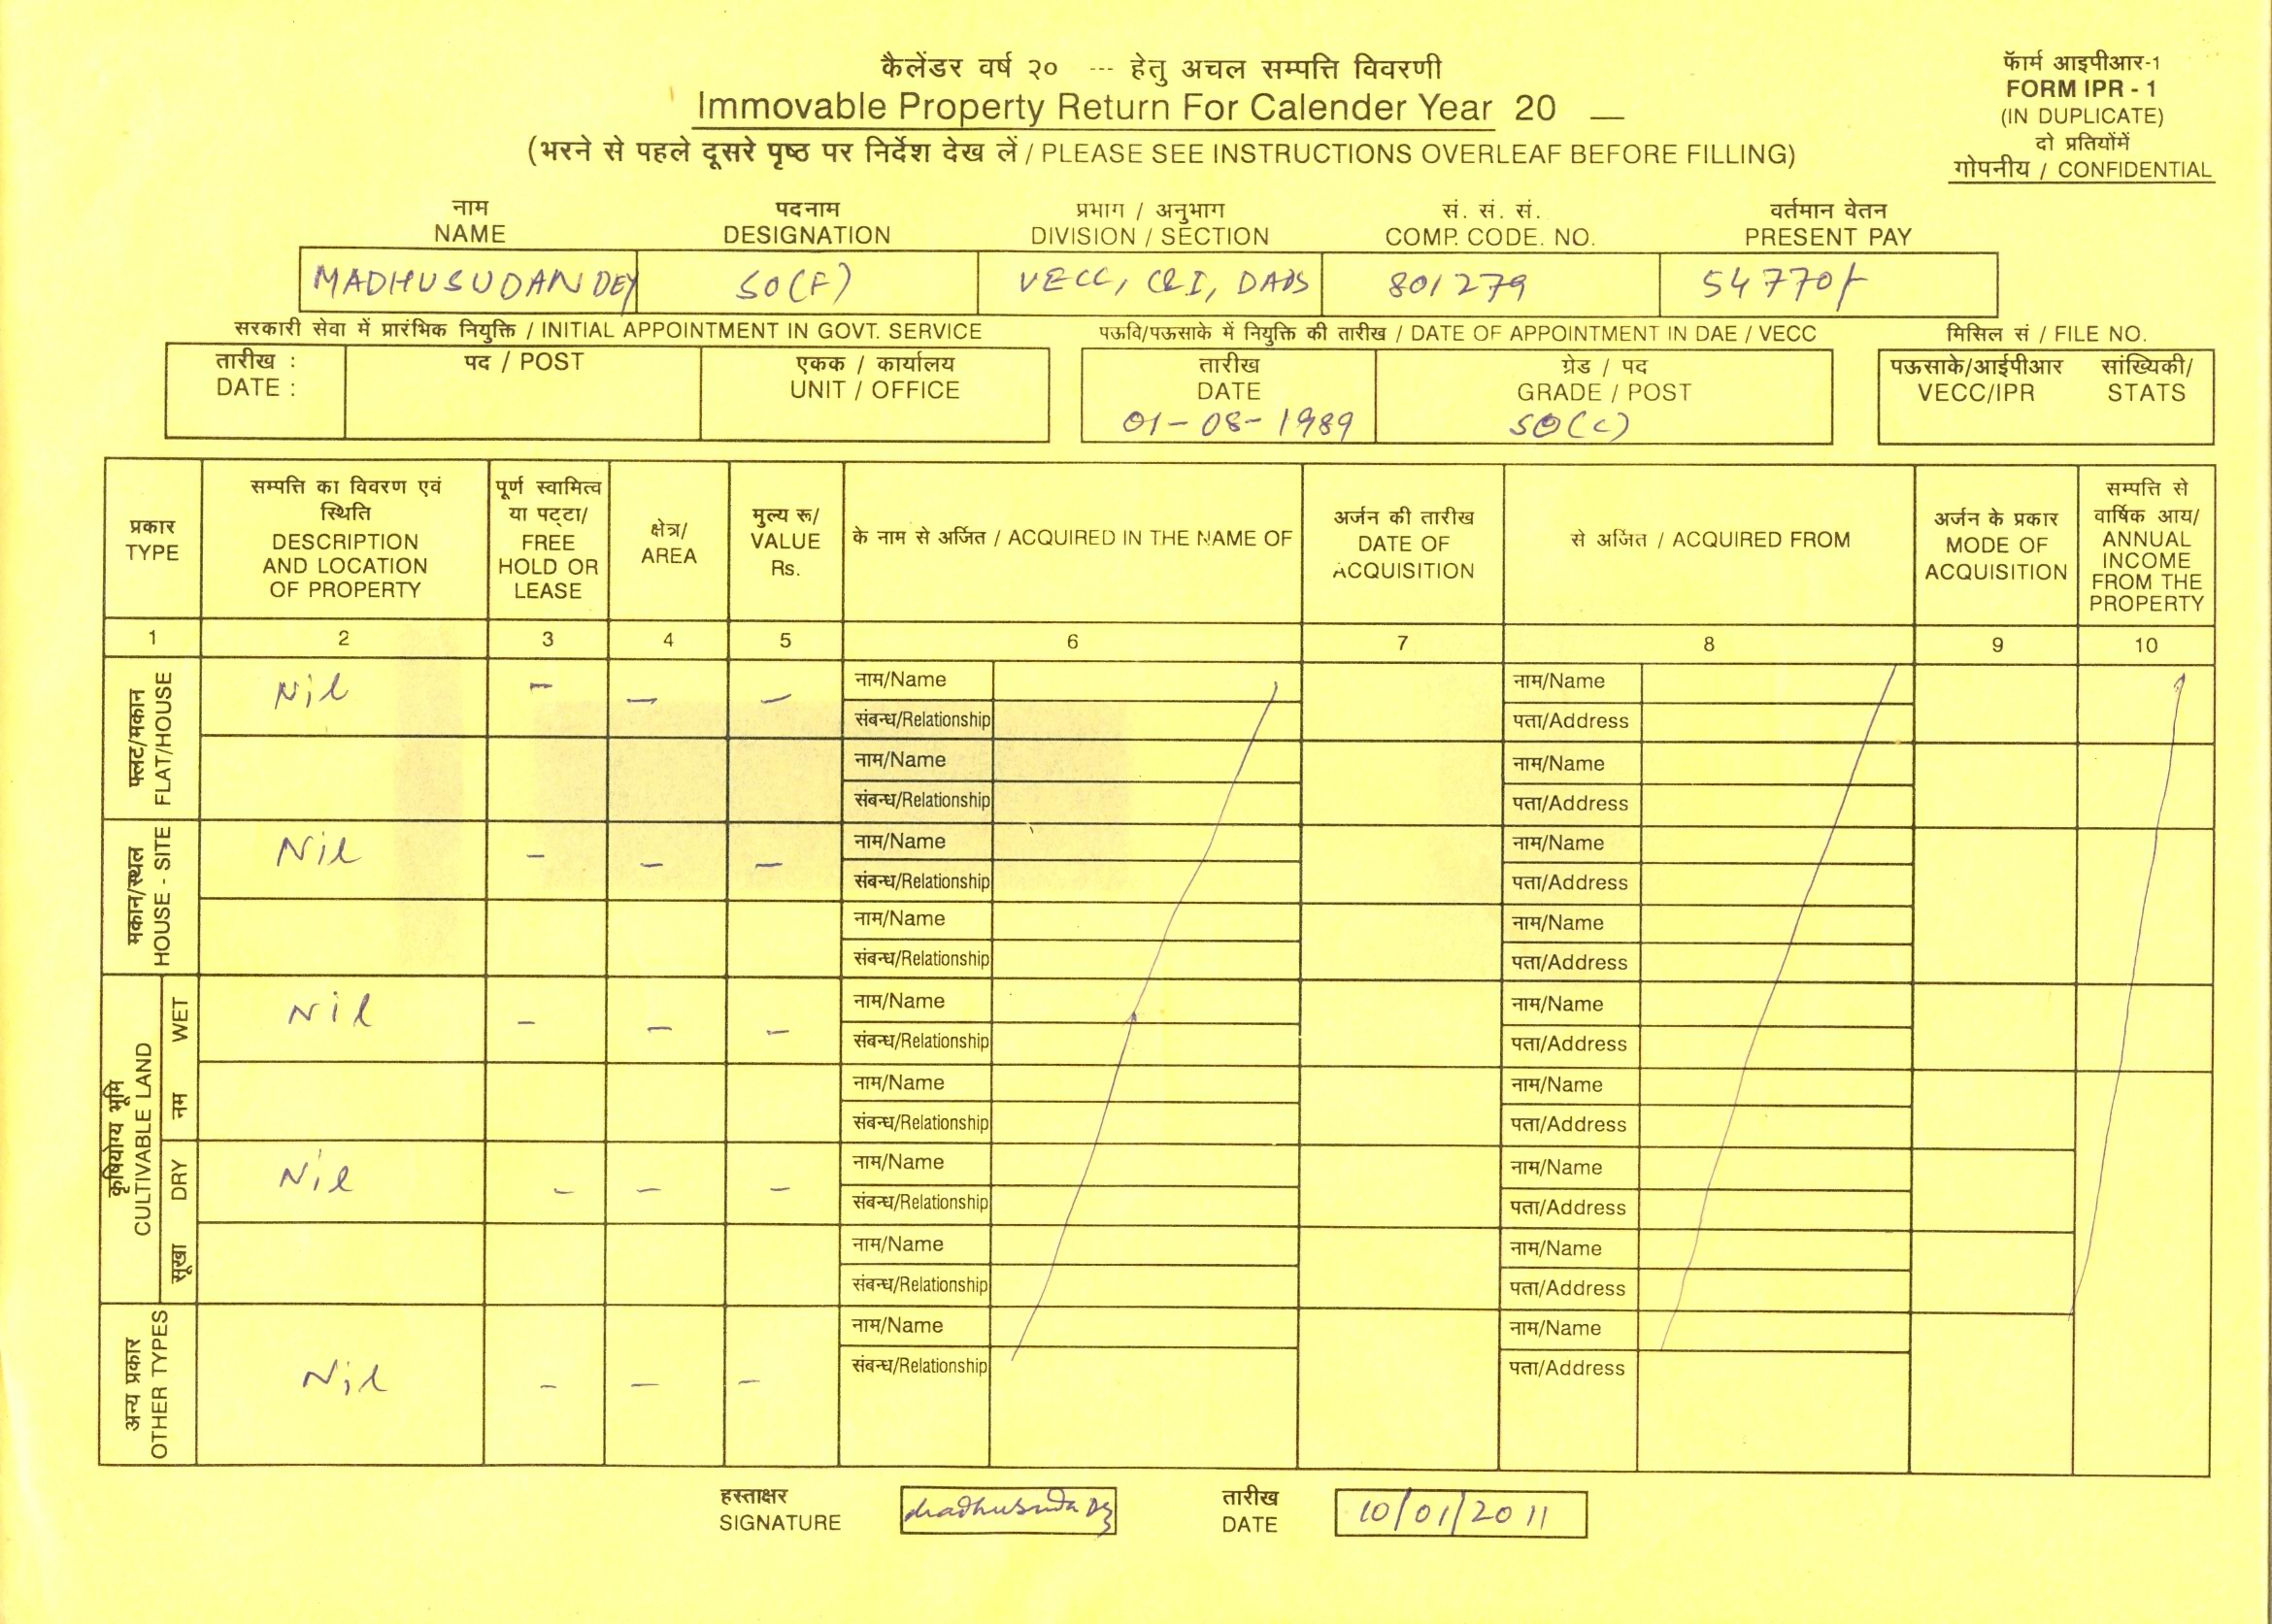 कैलेंडर वर्ष २० --- हेतु अचल सम्पत्ति विवरणी
Immovable Property Return For Calender Year 20 __
(भरने से पहले दूसरे पृष्ठ पर निर्देश देख लें / PLEASE SEE INSTRUCTIONS OVERLEAF BEFORE FILLING)
फॅार्म आइपीआर-1
FORM IPR - 1
(IN DUPLICATE)
दो प्रतियोंमें
गोपनीय / CONFIDENTIAL
नाम पदनाम प्रभाग / अनुभाग सं. सं. सं. वर्तमान वेतन
NAME DESIGNATION DIVISION / SECTION COMP. CODE. NO. PRESENT PAY
MADHUSUDAN DEY SO(F) VECC, C&I, DADS 801279 54770/-
सरकारी सेवा में प्रारंभिक नियुक्ति / INITIAL APPOINTMENT IN GOVT. SERVICE पऊवि/पऊसाके में नियुक्ति की तारीख / DATE OF APPOINTMENT IN DAE / VECC मिसिल सं / FILE NO.
तारीख : पद / POST एकक / कार्यालय तारीख ग्रेड / पद पऊसाके/आईपीआर सांख्यिकी/
DATE : UNIT / OFFICE DATE GRADE / POST VECC/IPR STATS
01-08-1989 SO(C)
प्रकार
TYPE
सम्पत्ति का विवरण एवं
स्थिति
DESCRIPTION
AND LOCATION
OF PROPERTY
पूर्ण स्वामित्व
या पट्टा/
FREE
HOLD OR
LEASE
क्षेत्र/
AREA
मुल्य रू/
VALUE
Rs.
के नाम से अर्जित / ACQUIRED IN THE NAME OF
अर्जन की तारीख
DATE OF
ACQUISITION
से अर्जित / ACQUIRED FROM
अर्जन के प्रकार
MODE OF
ACQUISITION
सम्पत्ति से
वार्षिक आय/
ANNUAL
INCOME
FROM THE
PROPERTY
1 2 3 4 5 6 7 8 9 10
फ्लट/मकान
FLAT/HOUSE
Nil - - - नाम/Name नाम/Name
संबन्ध/Relationship पता/Address
नाम/Name नाम/Name
संबन्ध/Relationship पता/Address
मकान/स्थल
HOUSE - SITE
Nil - - - नाम/Name नाम/Name
संबन्ध/Relationship पता/Address
नाम/Name नाम/Name
संबन्ध/Relationship पता/Address
कृषियोग्य भूमि
CULTIVABLE LAND
नम WET
Nil - - - नाम/Name नाम/Name
संबन्ध/Relationship पता/Address
नाम/Name नाम/Name
संबन्ध/Relationship पता/Address
सूखा DRY
Nil - - - नाम/Name नाम/Name
संबन्ध/Relationship पता/Address
नाम/Name नाम/Name
संबन्ध/Relationship पता/Address
अन्य प्रकार
OTHER TYPES
Nil - - - नाम/Name नाम/Name
संबन्ध/Relationship पता/Address
हस्ताक्षर तारीख
SIGNATURE Madhusudan Dey DATE 10/01/2011